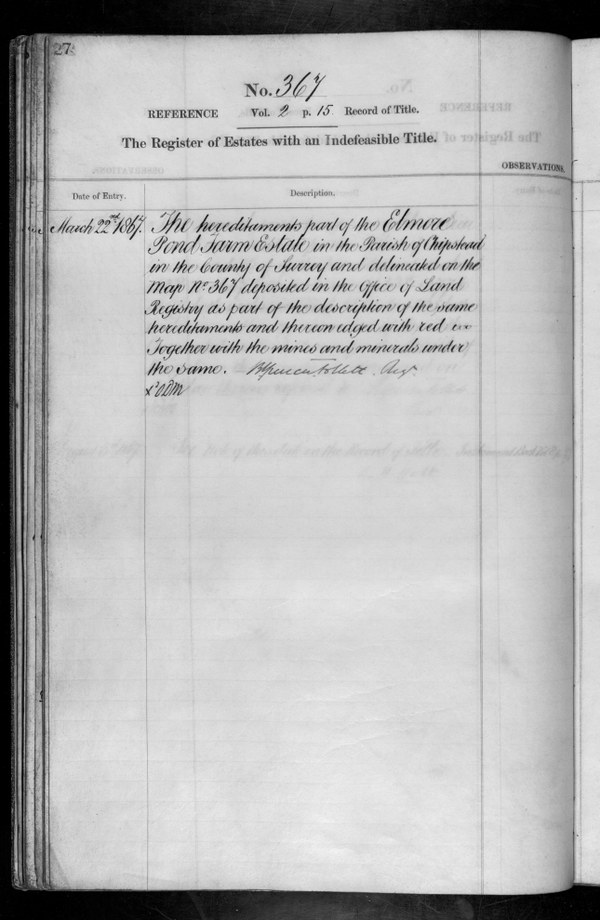 27
No. 367
REFERENCE Vol. 2 p. 15 Record of Title.
The Register of Estates with an Indefeasible Title.
OBSERVATIONS.
Date of Entry. Description.
March 22nd 1867. The hereditaments part of the Elmore
Pond Farm Estate in the Parish of Chipstead
in the County of Surrey and delineated on the
Map No. 367 deposited in the Office of Land
Registry as part of the description of the same
hereditaments and thereon edged with red
Together with the mines and minerals under
the same. Regr